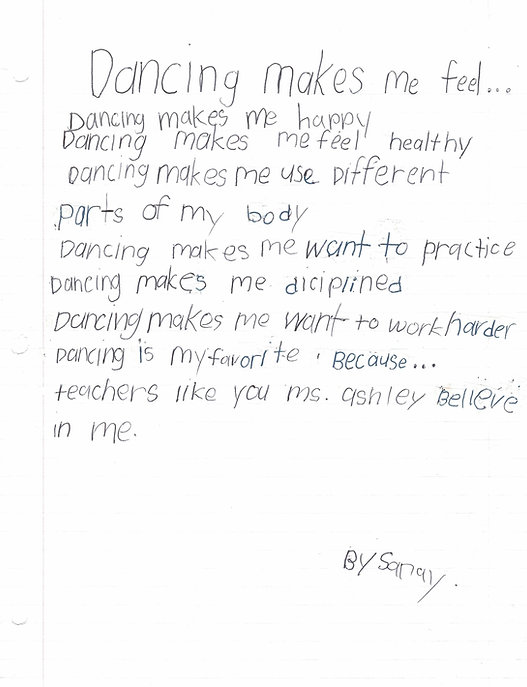 Dancing makes me feel...
Dancing makes me happy
Dancing makes me feel healthy
Dancing makes me use Different
parts of my body
Dancing makes me want to practice
Dancing makes me diciplined
Dancing makes me want to work harder
Dancing is my favorite . Because...
teachers like you ms. ashley Believe
in me.
By Sanay.